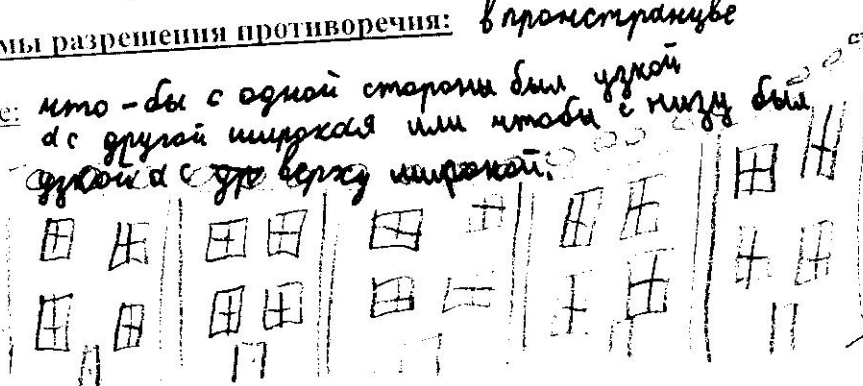 мы разрешения противоречия: в пронстранцве
е: что-бы с одной стороны был узкой
а с другой широкая или чтобы с низу был
узкой а с верху широкой.